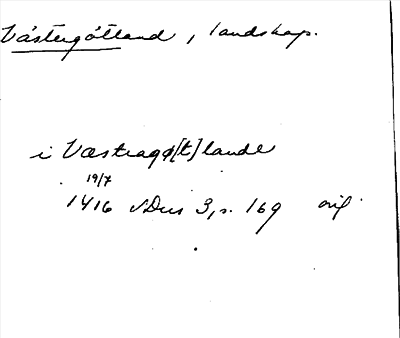 Västergötland, landskap.
i Væstragø[t]lande
19/7
1416 SDns 3, s. 169 orig.